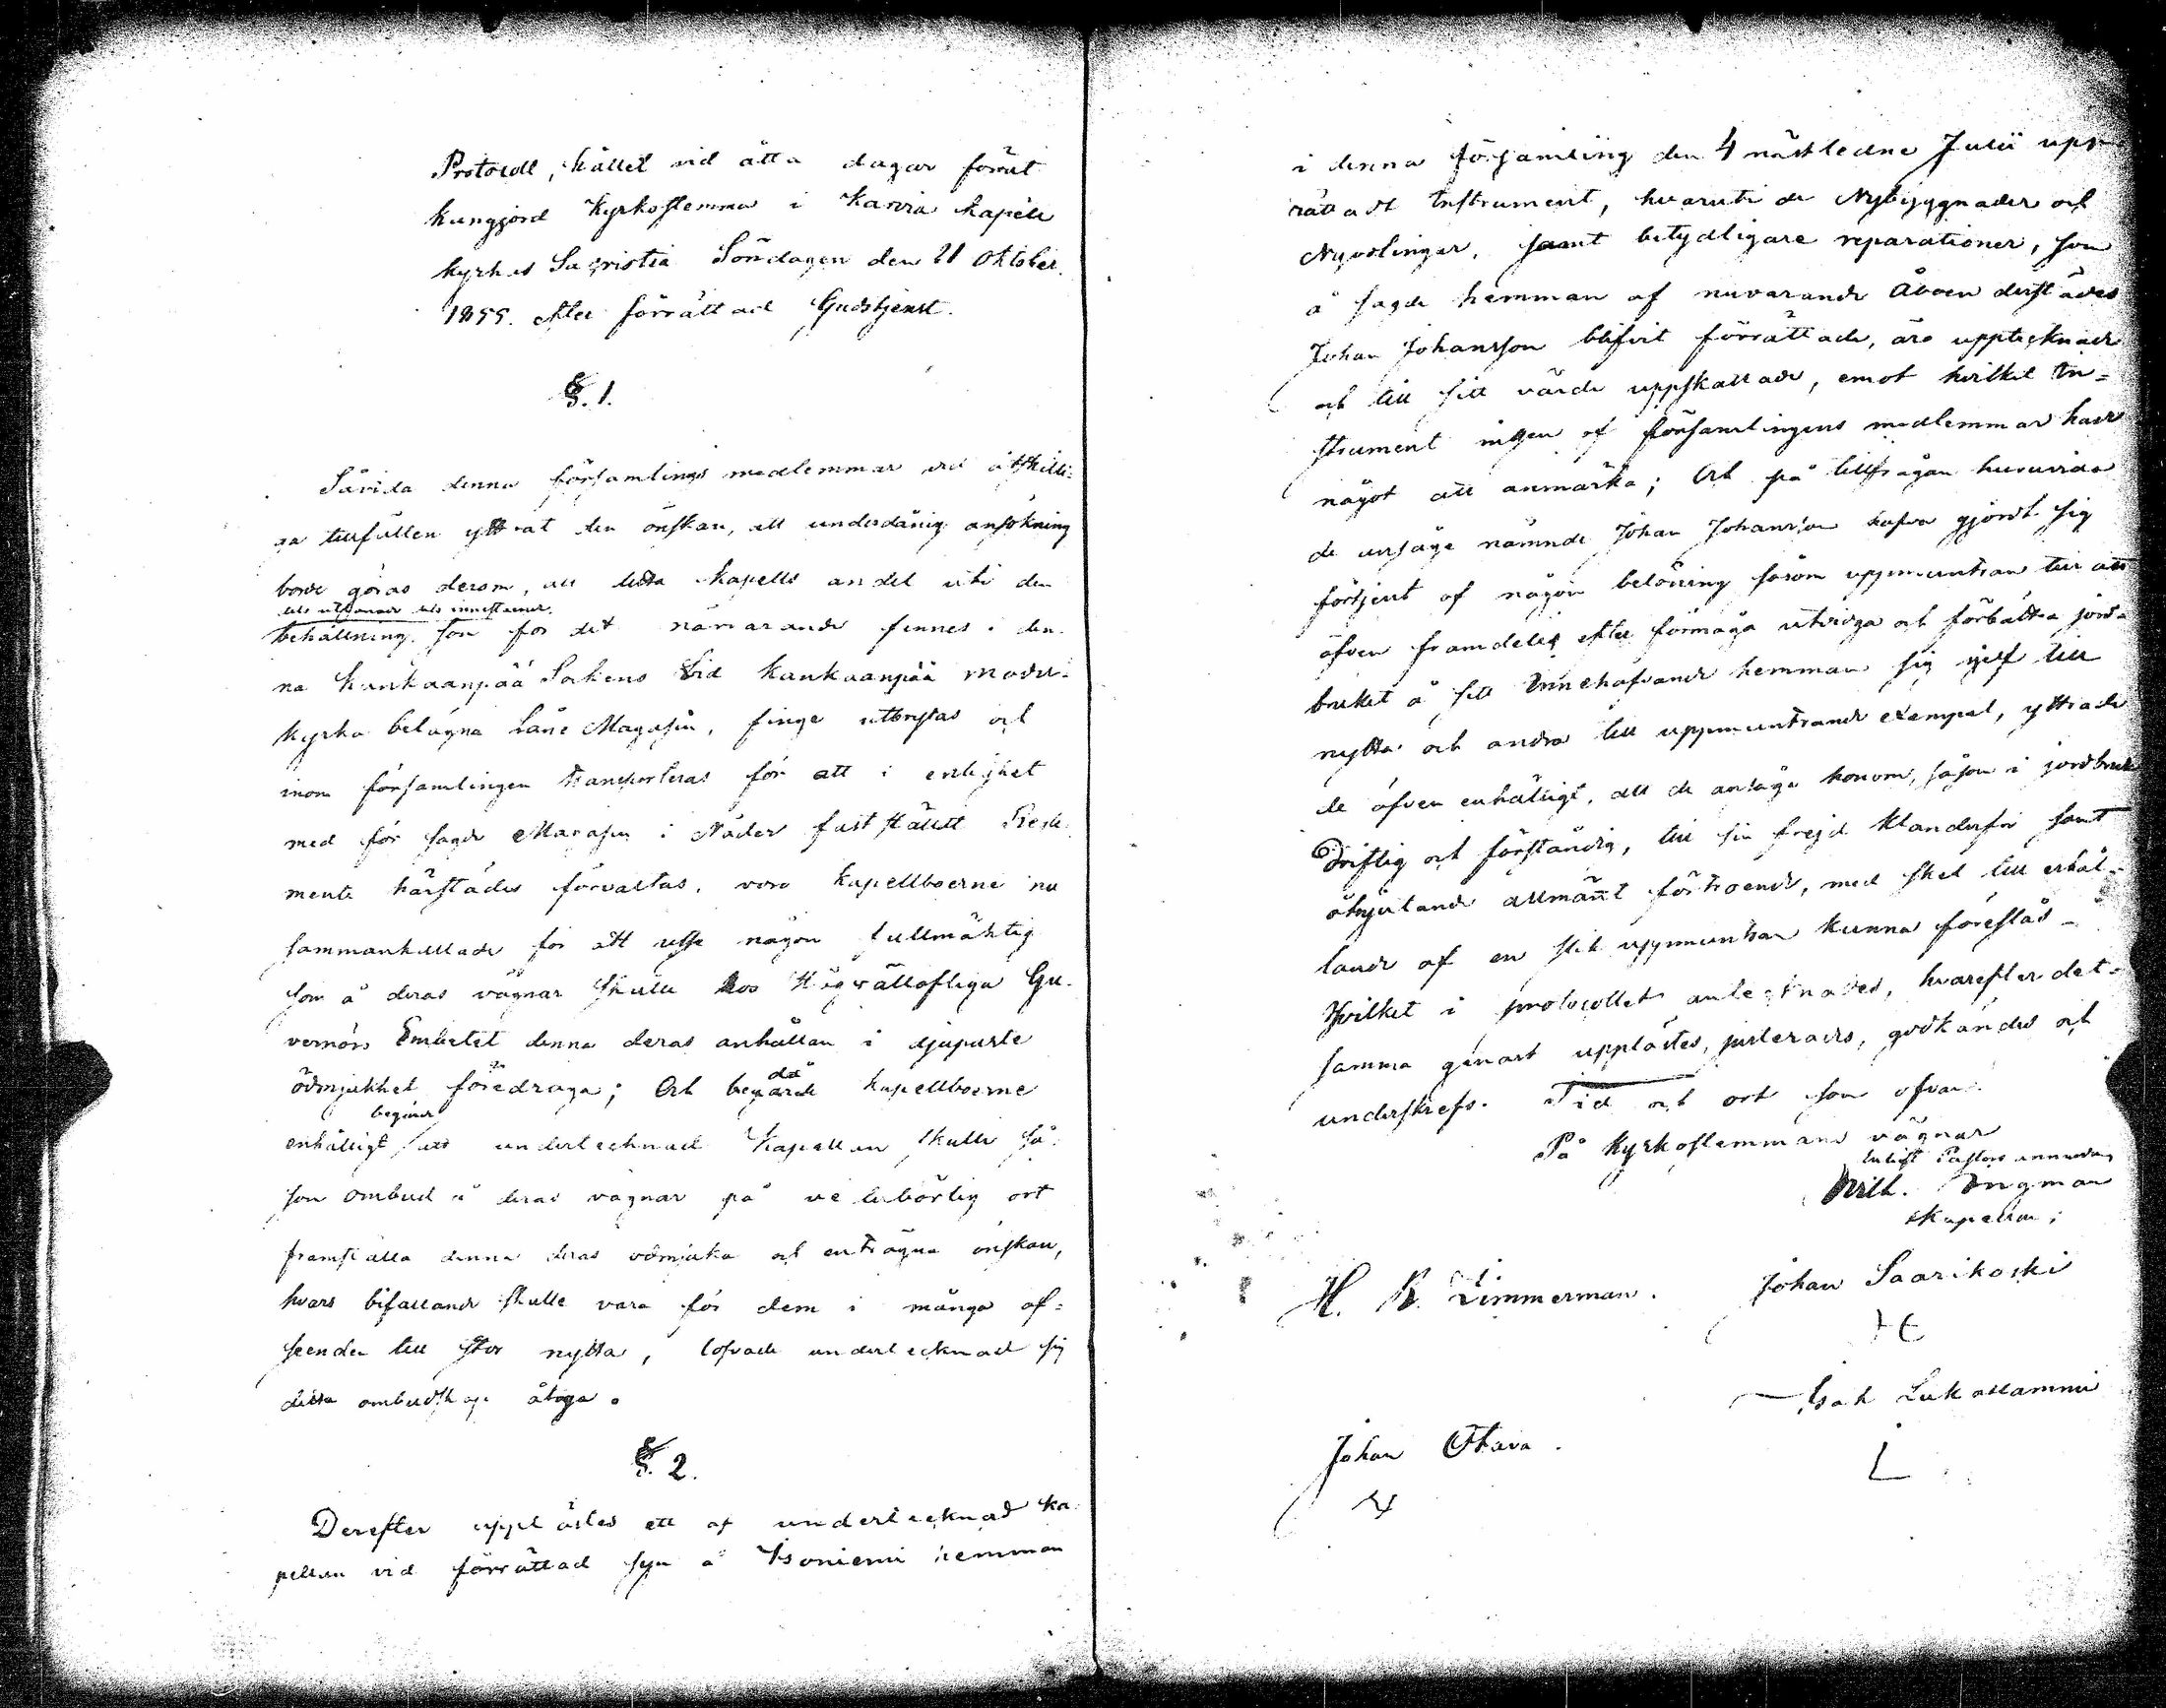 Protocoll, hållet vid åtta dagar förut
kungjord Kyrkostemma i Karvia Kapell
kyrkas Sacristia Söndagen den 21 Oktober
1855. efter förrättad Gudstjenst.
§. 1.
Såvida denna församlings medlemmar vid åtskilli-
ga tillfällen yttrat den önskan, att underdånig ansökning
borde göras derom, att detta Kapells andel uti den
behållning, som för det närvarande finnes i den-
na Kankaanpää Sockens vid Kankaanpää moder-
kyrka belägna Låne Magasin, finge utbrytas och
inom församlingen transporteras för att i enlighet
med för sagde Magasin i Nåder fastställdt Regle-
mente härstädes förvaltas, voro Kapellboerne nu
sammankallade för att utse någon fullmäktig
som å deras vägnar skulle hos Högvällofliga Gu-
vernörs Embetet denna deras anhållan i djupaste
ödmjukhet föredraga; Och begärde då kapellboerne
enhälligt att undertecknad Kapellan skulle så-
som ombud å deras vägnar på vederbörlig ort
framställa denna deras ödmjuka och enträgna önskan,
hvars bifallande skulle vara för dem i många af-
seenden till stor nytta, lofvade undertecknad sig
detta ombudskap åtaga.
§. 2.
Derefter upplästes ett af undertecknad Ka-
pellan vid förrättad syn å Isoniemi hemman
i denna församling den 4 nästledne Julii upp-
rättadt Instrument, hvaruti de Nybyggnader och
Nyodlingar, samt betydligare reparationer, som
å sagde hemman af nuvarande Åboen derstädes
Johan Johansson blifvit förrättade, äro upptecknade
och till sitt värde uppskattade, emot hvilket In-
strument ingen af församlingens medlemmar hade
något att anmärka; Och på tillfrågan huruvida
de ansåge nämnde Johan Johansson hafva gjordt sig
förtjent af någon belöning såsom uppmuntran till att
äfven framdeles efter förmåga utvidga och förbättra jord-
bruket å sitt Innehafvande hemman sig sjelf till
nytta och andra till uppmuntrande exempel, yttrade
de äfven enhälligt, att de ansåge honom, såsom i jordbruk
Driftig och förståndig, till sin frejd klanderfri samt
åtnjutande allmänt förtroende, med skäl till erhål-
lande af en slik uppmuntran kunna föreslås -
Hvilket i protocollet antecknades, hvarefter det-
samma genast upplästes, justerades, godkändes och
underskrefs. Tid och ort som ofvan.
På Kyrkostemmans vägnar
enligt Pastors anmodan
Wilh. Ingman
Kapellan;
H. R. Zimmerman. Johan Saarikoski
Isak Lukollammi
Johan Ohava.